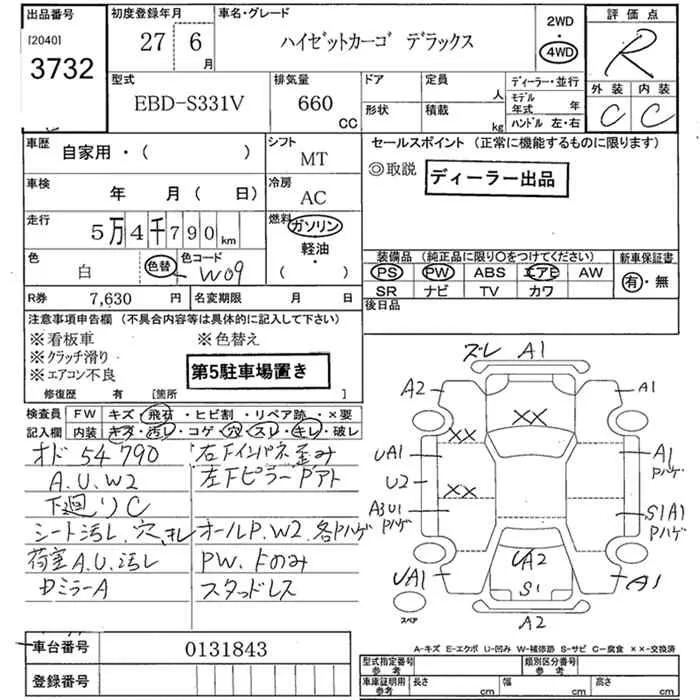 出品番号
[2040]
3732
初度登録年月
27年 6月
車名・グレード
ハイゼットカーゴ デラックス
2WD
・
4WD
評価点
R
外装 内装
C C
型式
EBD-S331V
排気量
660
CC
ドア
形状
定員
人
積載
kg
ディーラー・並行
モデル年式 年
ハンドル 左・右
車歴
自家用・( )
シフト
MT
車検
年 月( 日)
冷房
AC
走行
5万4千790km
燃料
ガソリン
・
軽油
・
( )
色
白
色替
色コード
W09
R券 7,630 円
名変期限 月 日
セールスポイント (正常に機能するものに限ります)
◎取説
ディーラー出品
装備品 (純正品に限り○をつけてください)
PS PW ABS エアB AW
SR ナビ TV カワ
新車保証書
有・無
後日品
注意事項申告欄 (不具合内容等は具体的に記入して下さい)
※看板車 ※色替え
※クラッチ滑り
※エアコン不良
第5駐車場置き
修復歴 有 [箇所
検査員 FW キズ・飛石・ヒビ割・リペア跡・×要
記入欄 内装 キズ・汚れ・コゲ・穴・スレ・キレ・破レ
オド 54790 右下インパネ歪み
A.U.W2 左下ピラーPアト
下廻りC
シート汚レ.穴.キレ オールP.W2.各Pハゲ
荷室A.U.汚レ PW.Fのみ
DミラーA スタッドレス
ズレ A1
A2
A1
××
××
UA1
A1
Pハゲ
U2
××
A3U1
Pハゲ
S1A1
Pハゲ
UA2
UA1
S1
A1
スペア
A2
A-キズ E-エクボ U-凹み W-補修跡 S-サビ C-腐食 ××-交換済
車台番号 0131843
登録番号
型式指定番号 参考
類別区分番号 参考
車庫証明用 参考
長さ cm
幅 cm
高さ cm